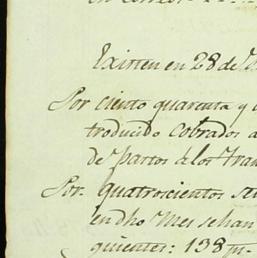 Existen en 28 de
Por ciento quarenta y
troducido cobrados a
de partos de los Tran
Por quatrocientos se
en dho Mes se han
guientes: 138 p.